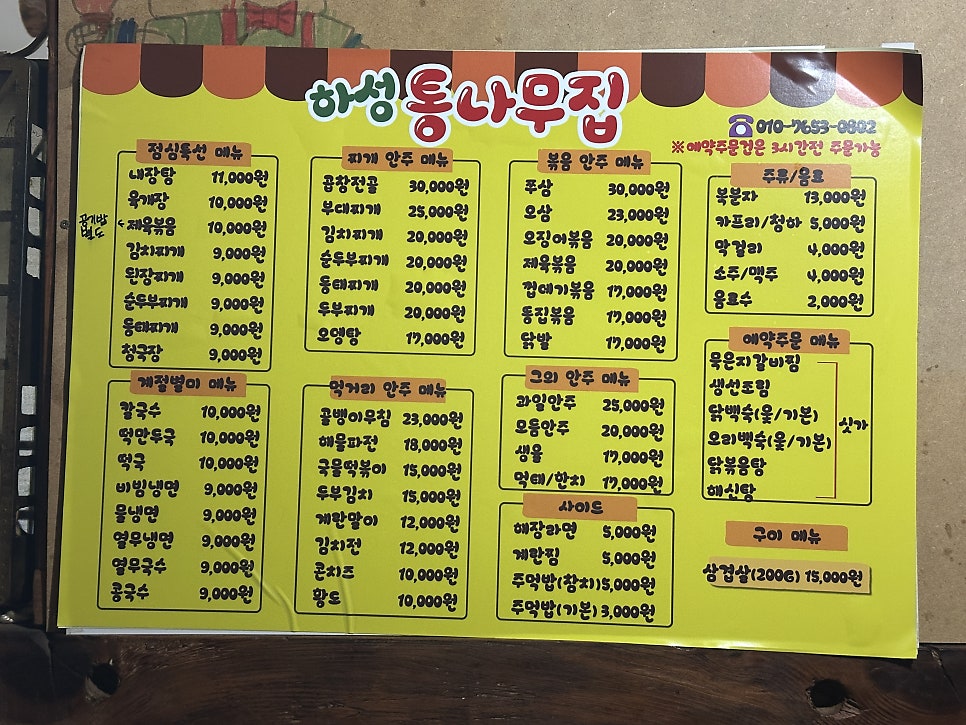 하성 통나무집
☎ 010-7653-0802
※ 예약주문건은 3시간전 주문가능
점심특선 메뉴
내장탕 11,000원
육개장 10,000원
공기밥 별도
제육볶음 10,000원
김치찌개 9,000원
된장찌개 9,000원
순두부찌개 9,000원
동태찌개 9,000원
청국장 9,000원
찌개 안주 메뉴
곱창전골 30,000원
부대찌개 25,000원
김치찌개 20,000원
순두부찌개 20,000원
동태찌개 20,000원
두부찌개 20,000원
오뎅탕 17,000원
볶음 안주 메뉴
쭈삼 30,000원
오삼 23,000원
오징어볶음 20,000원
제육볶음 20,000원
껍데기볶음 17,000원
똥집볶음 17,000원
닭발 17,000원
주류/음료
복분자 13,000원
카프리/청하 5,000원
막걸리 4,000원
소주/맥주 4,000원
음료수 2,000원
계절별미 메뉴
칼국수 10,000원
떡만두국 10,000원
떡국 10,000원
비빔냉면 9,000원
물냉면 9,000원
열무냉면 9,000원
열무국수 9,000원
콩국수 9,000원
먹거리 안주 메뉴
골뱅이무침 23,000원
해물파전 18,000원
국물떡볶이 15,000원
두부김치 15,000원
계란말이 12,000원
김치전 12,000원
콘치즈 10,000원
황도 10,000원
그외 안주 메뉴
과일안주 25,000원
모듬안주 20,000원
생율 17,000원
먹태/한치 17,000원
사이드
해장라면 5,000원
계란찜 5,000원
주먹밥(참치) 5,000원
주먹밥(기본) 3,000원
예약주문 메뉴
묵은지갈비찜
생선조림
닭백숙(옻/기본)
오리백숙(옻/기본)
닭볶음탕
해신탕
싯가
구이 메뉴
삼겹살(200G) 15,000원